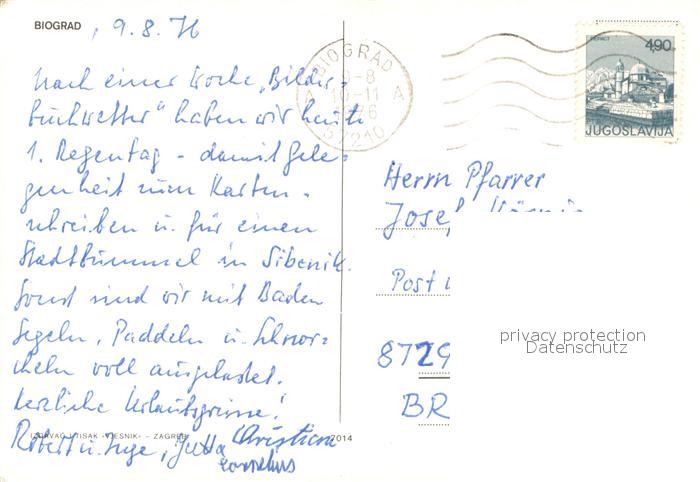 BIOGRAD , 9.8.76
Nach einer Woche „Bilder-
buchwetter“ haben wir heute
1. Regentag - damit Gele-
genheit zum Karten-
schreiben u. für einen
Stadtbummel in Sibenik.
Sonst sind wir mit Baden
Segeln, Paddeln u. Schnor-
cheln voll ausgelastet.
Herzliche Urlaubsgrüsse!
Robert u. Inge, Jutta Christiane
Cornelius
IZDAVAČ I TISAK »VJESNIK« - ZAGREB
7014
BIOGRAD
9-8
A 10-11 A
76
57210
PERAST
4,90
JUGOSLAVIJA
Herrn Pfarrer
Josef
Post
8729
BR
privacy protection
Datenschutz